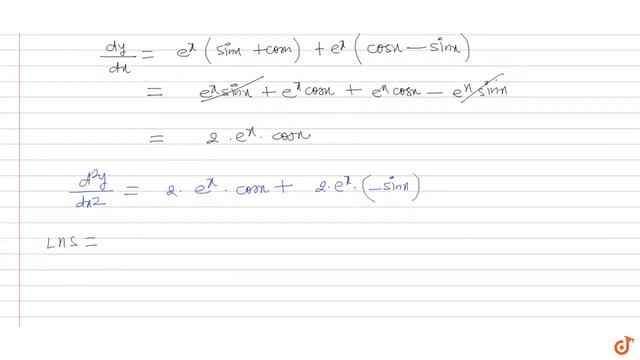 dy/dx = eˣ (sinx + cosx) + eˣ (cosx − sinx)
= eˣ sinx + eˣ cosx + eˣ cosx − eˣ sinx
= 2 . eˣ . cosx
d²y/dx2 = 2 . eˣ . cosx + 2. eˣ . (−sinx)
LHS =